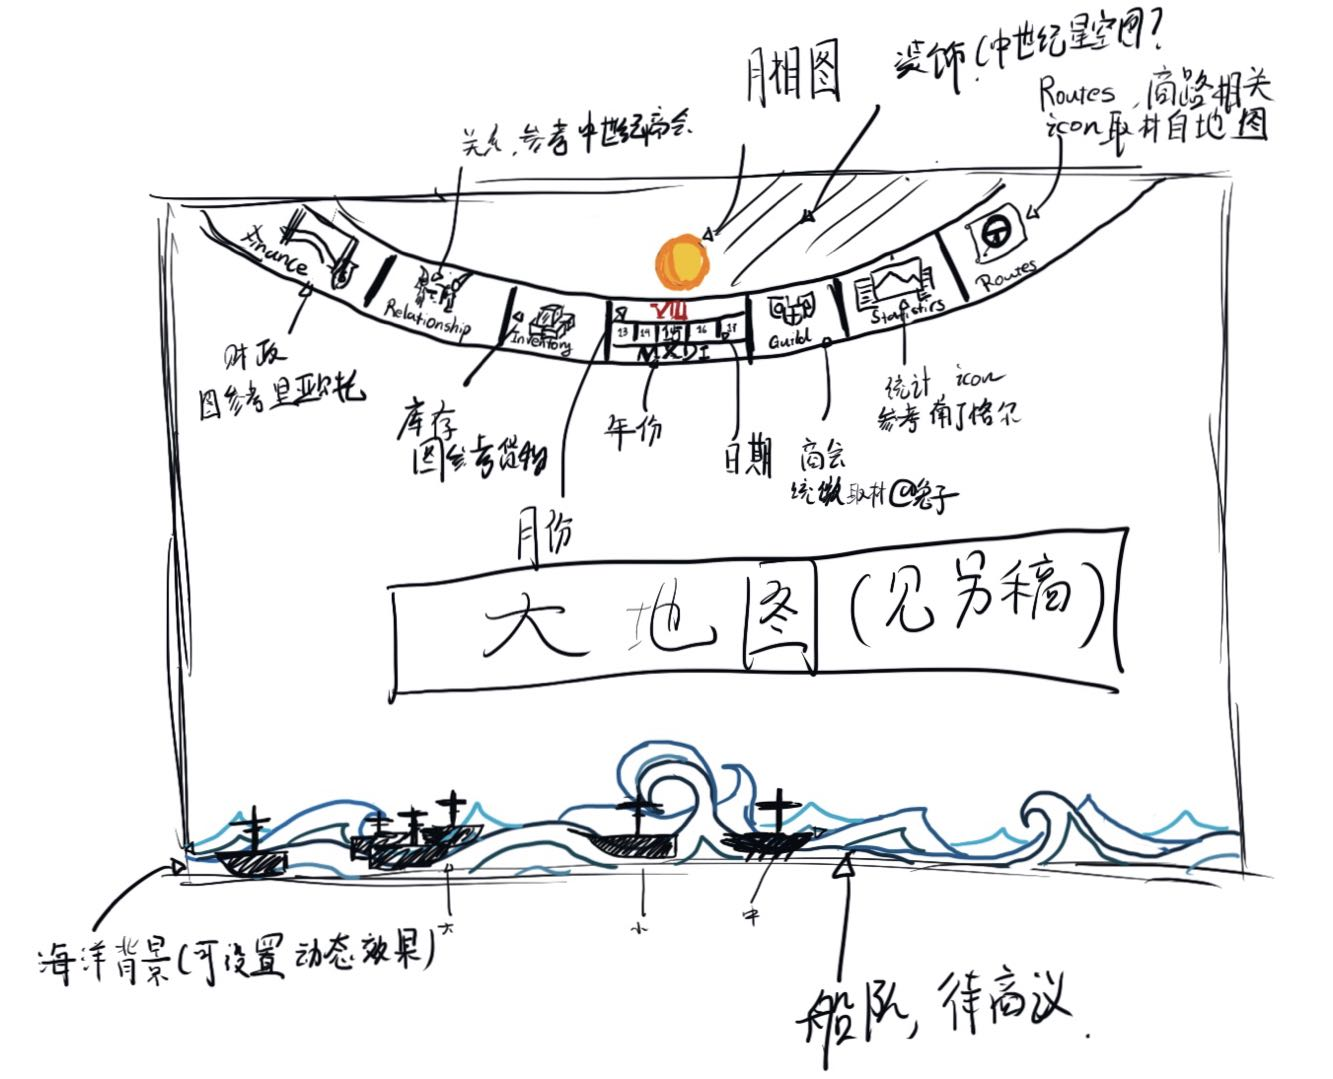 月相图
装饰(中世纪星空图?
Routes,商路相关
icon取材自地图
关系,参考中世纪商会
Finance
Relationship
Inventory
VIII
13 14 15 16 17
MXDI
Guild
Statistics
Routes
财政
图参考里亚尔托
库存
图参考货物
月份
年份
日期
商会
统计 icon
参考南丁格尔
取材@兔子
大地图(见另稿)
大
小
中
海洋背景(可设置动态效果)
船队,待商议.